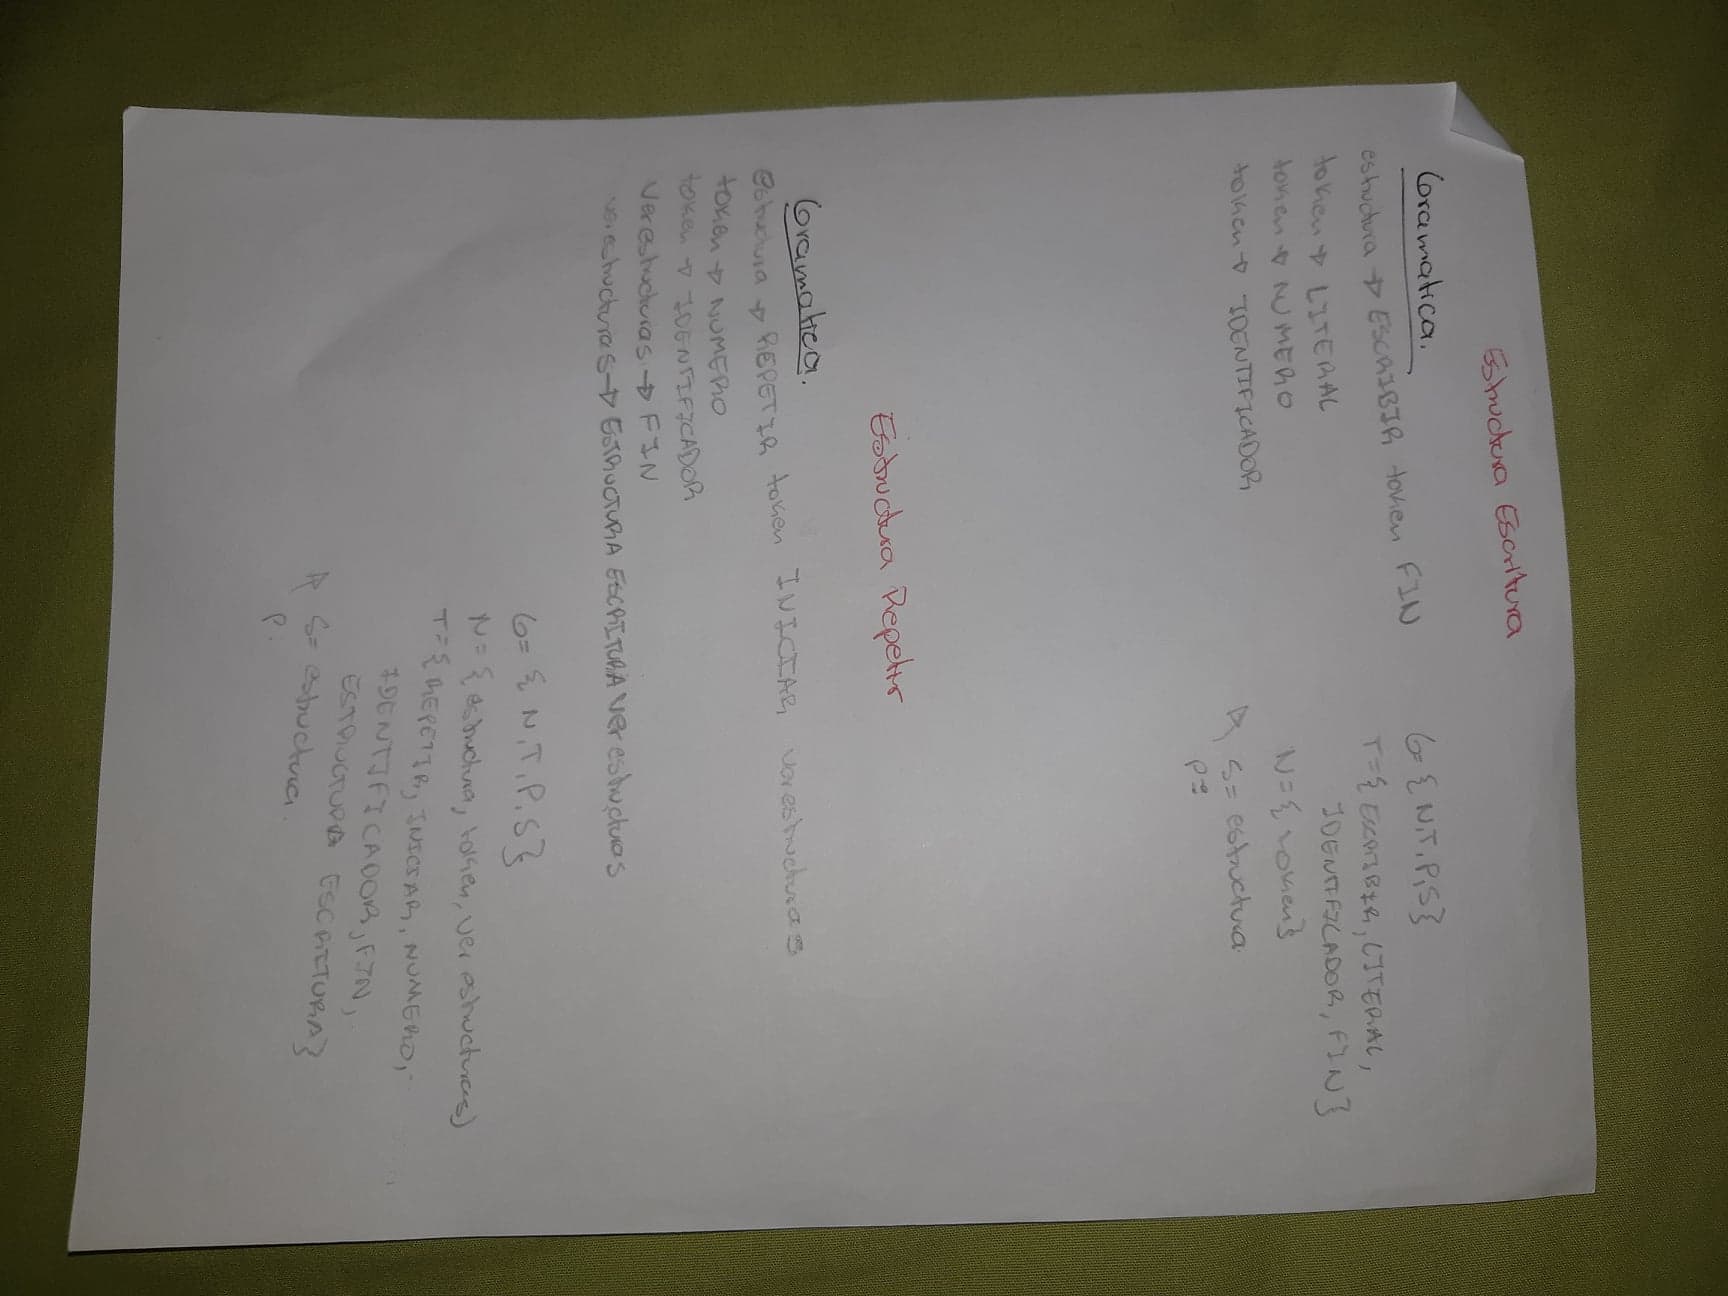 Estructura Escritura
Gramatica.
estructura → ESCRIBIR token FIN
token → LITERAL
token → NUMERO
token → IDENTIFICADOR
G= { N,T,P,S}
T={ ESCRIBIR, LITERAL,
IDENTIFICADOR, FIN}
N={token}
S= estructura
P=
Estructura Repetir
Gramatica.
estructura → REPETIR token INICIAR verestructuras
token → NUMERO
token → IDENTIFICADOR
Verestructuras → FIN
verestructuras → ESTRUCTURA ESCRITURA verestructuras
G= { N,T,P,S}
N= { estructura, token, verestructuras)
T= { REPETIR, INICIAR, NUMERO,
IDENTIFICADOR, FIN,
ESTRUCTURA ESCRITURA}
S= estructura.
P.